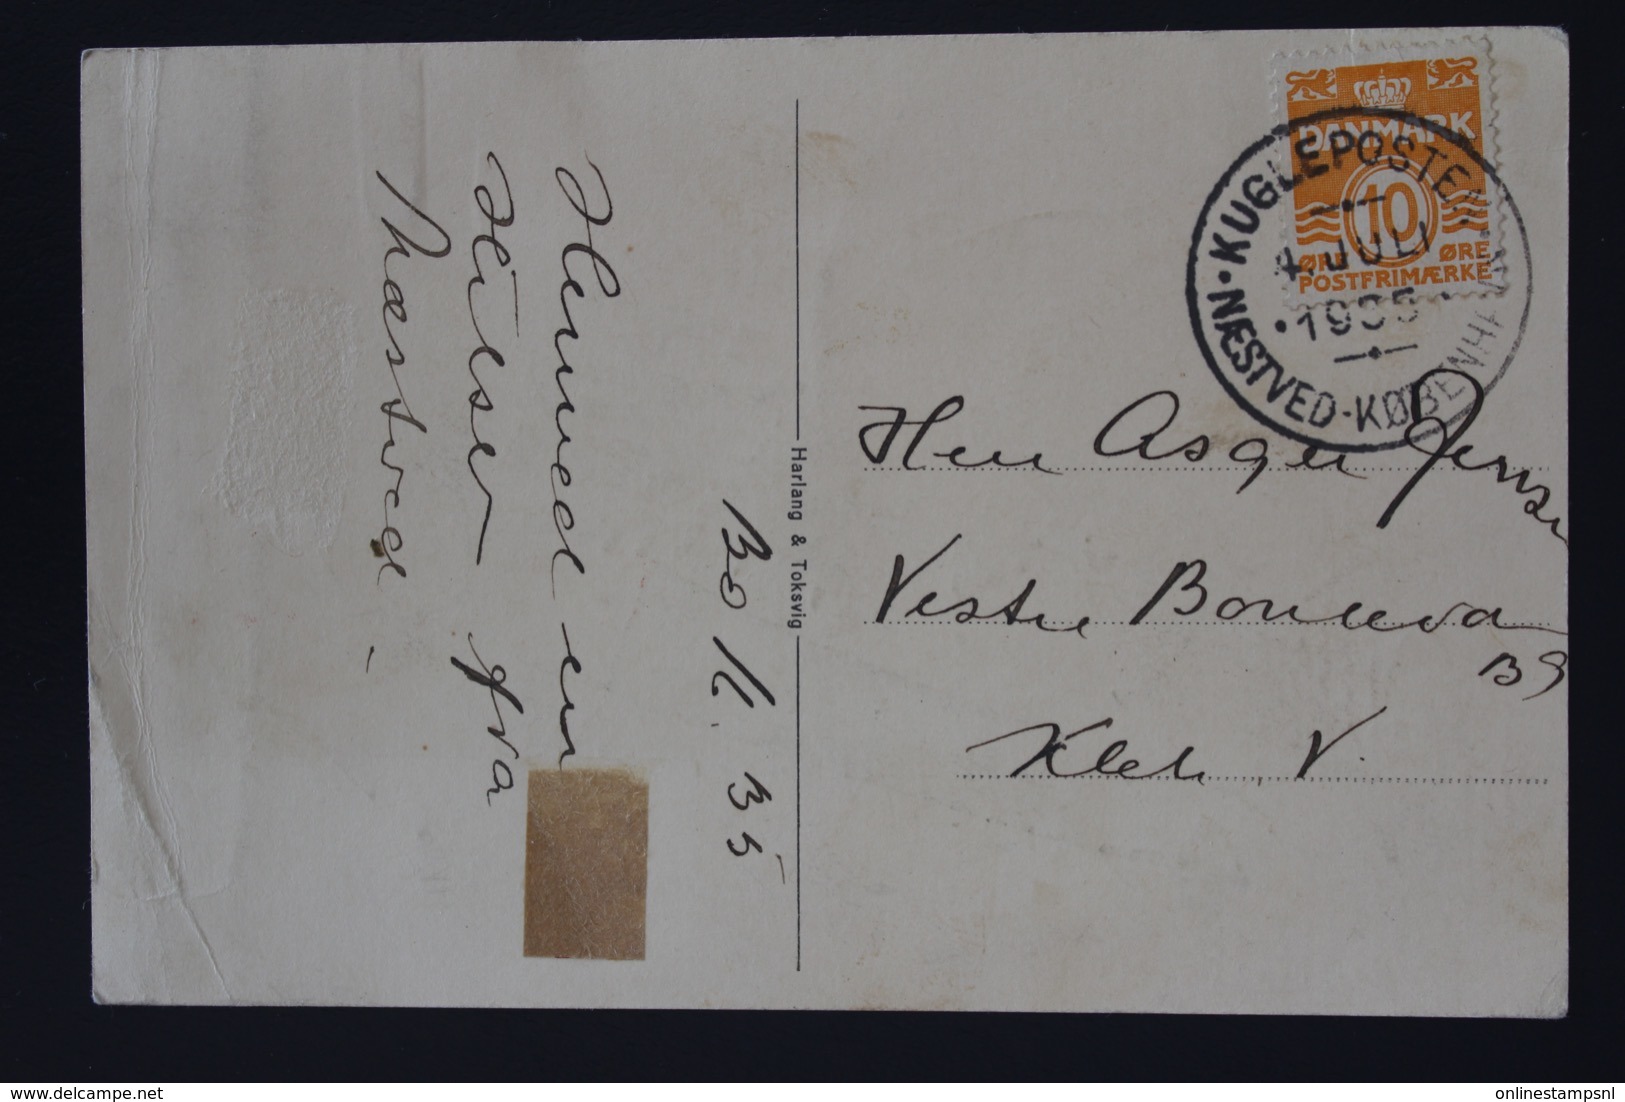 30/6. 35
Hermed en
Hilsen fra
Næstved.
Harlang & Toksvig
DANMARK
10
ØRE ØRE
POSTFRIMÆRKE
KUGLEPOSTEN
4. JULI
1935
NÆSTVED-KØBENHAVN
Herr Asger Jensen
Vestre Boulevard
Kbh. V.
onlinestampsnl